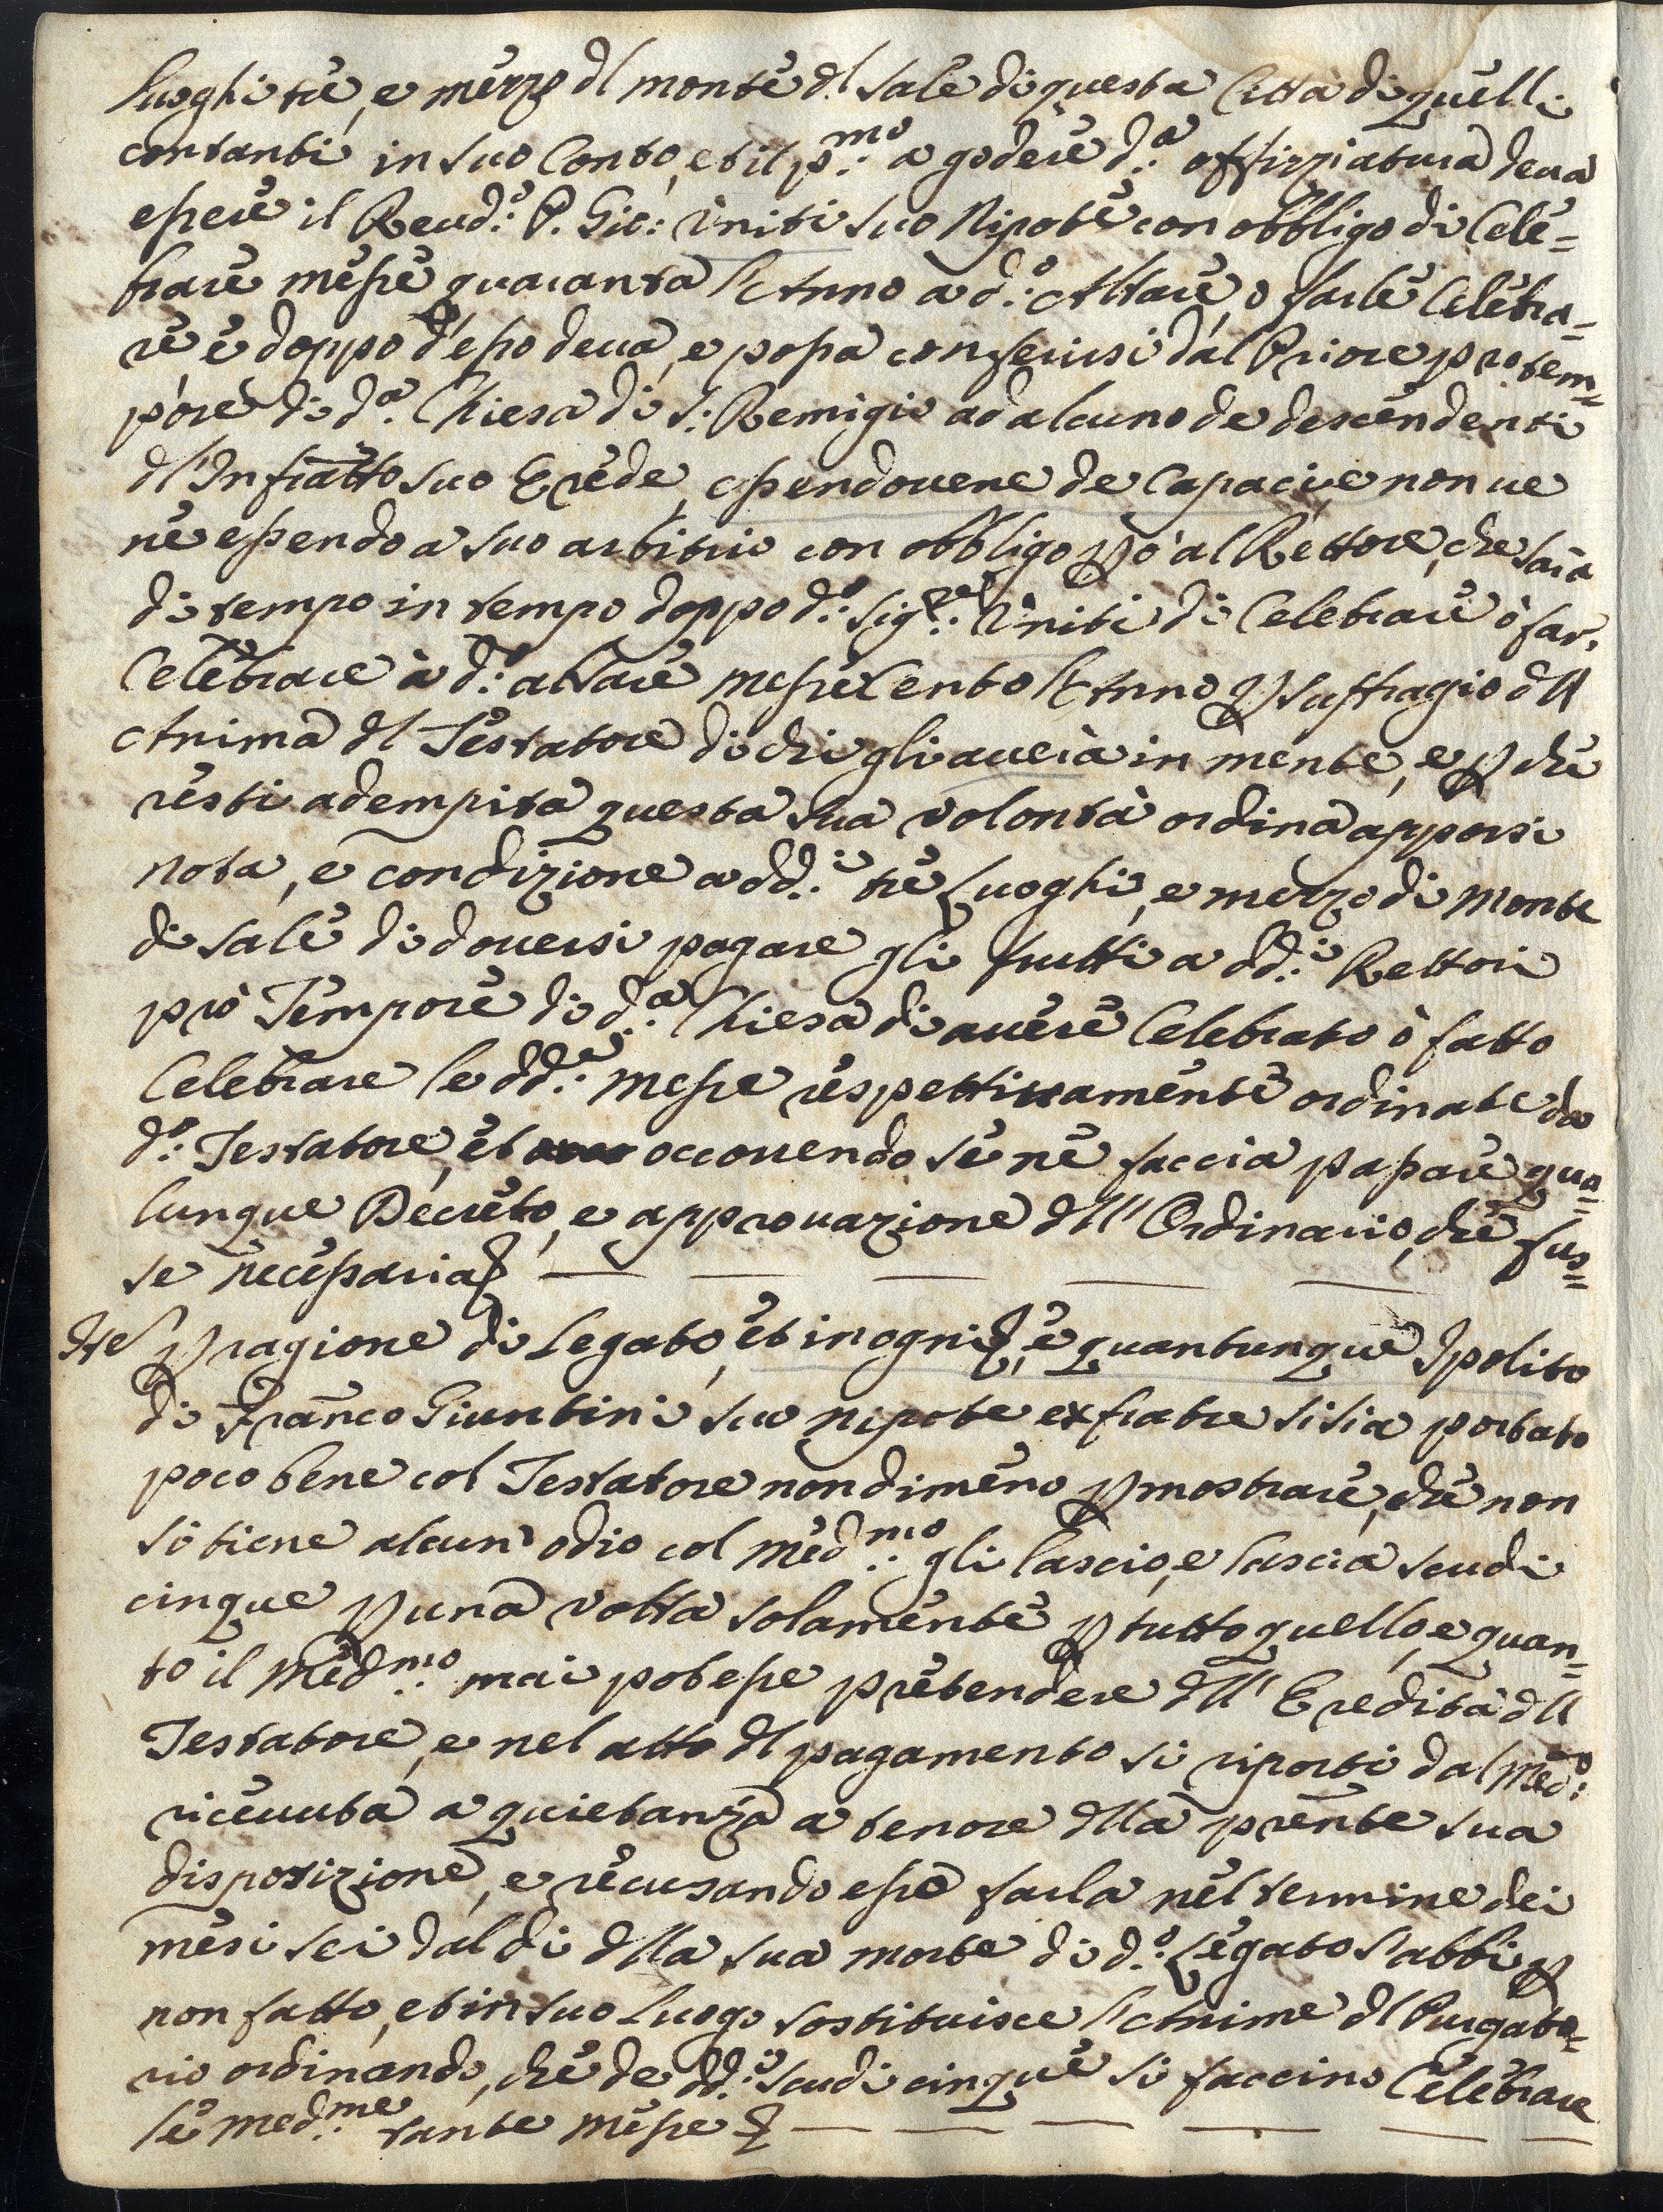 luoghi tre, e mezzo dl monte dl Sale di questa Città di quelli
contanti in suo Conto, et il p.mo a godere d.a offizziatura deva
essere il Reud.o P. Gio: Viniti suo Nipote con obbligo di Cele=
brare messe quaranta l'Anno a d.o Altare, o farle Celebra=
re, e doppo d'esso deva, e possa conferirsi dal Priore pro tem=
pore di d.a Chiesa di S. Remigio ad alcuno de descendenti
dl'Infratto suo Erede, essendovene de Capaci, e non ve
ne essendo a suo arbitrio con obbligo però al Rettore, che sarà
di tempo in tempo doppo d.o Sig.re Viniti di Celebrare ò far,
Celebrare à d.o altare messe Cento l'Anno p suffragio dll
Anima dl Testatore di chi gli averà in mente, e p che
resti adempita questa sua volontà ordina apporsi
nota, e condizione a dd.i tre Luoghi, e mezzo di Monte
di sale di doversi pagare gli frutti a dd.i Rettori
prò Tempore di d.a Chiesa di avere Celebrato ò fatto
Celebrare le dd.e messe respettivamente ordinate da
d.o Testatore, et occorrendo se ne faccia passare qua=
lunque Decreto, e approvazione dll' Ordinario, che fus=
se necessaria
Ite p ragione di Legato, et in ogni, e quantunque Ipolito
di Franco Giuntini suo nipote ex fratre si sia portato
poco bene col Testatore nondimeno p mostrare, che non
si tiene alcun' odio col med.mo gli lascio, e lascia scudi
cinque p una volta solamente p tutto quello, e quan=
to il Med.mo mai potesse pretendere dll' Eredità dll
Testatore, e nel atto dl pagamento si riporti dal Med.o
ricevuta a quietanza a tenore dlla prente sua
disposizione, e recusando esso farla nel termine dei
mesi sei dal di dlla sua morte di d.o Legato s'abbi p
non fatto, et in suo luogo sostituisce l'Anime dl Purgato=
rio ordinando, che de dd.i scudi cinque si faccino Celebrare
le med.me tante messe